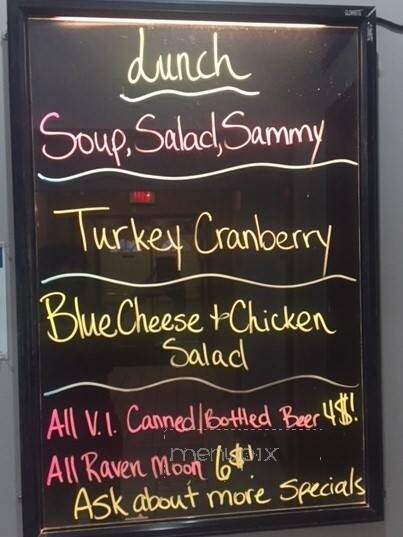 Lunch
Soup, Salad, Sammy
Turkey Cranberry
Blue Cheese + Chicken
Salad
All V.I. Canned/Bottled Beer 4$!
All Raven Moon 6$!
menupix
Ask about more Specials